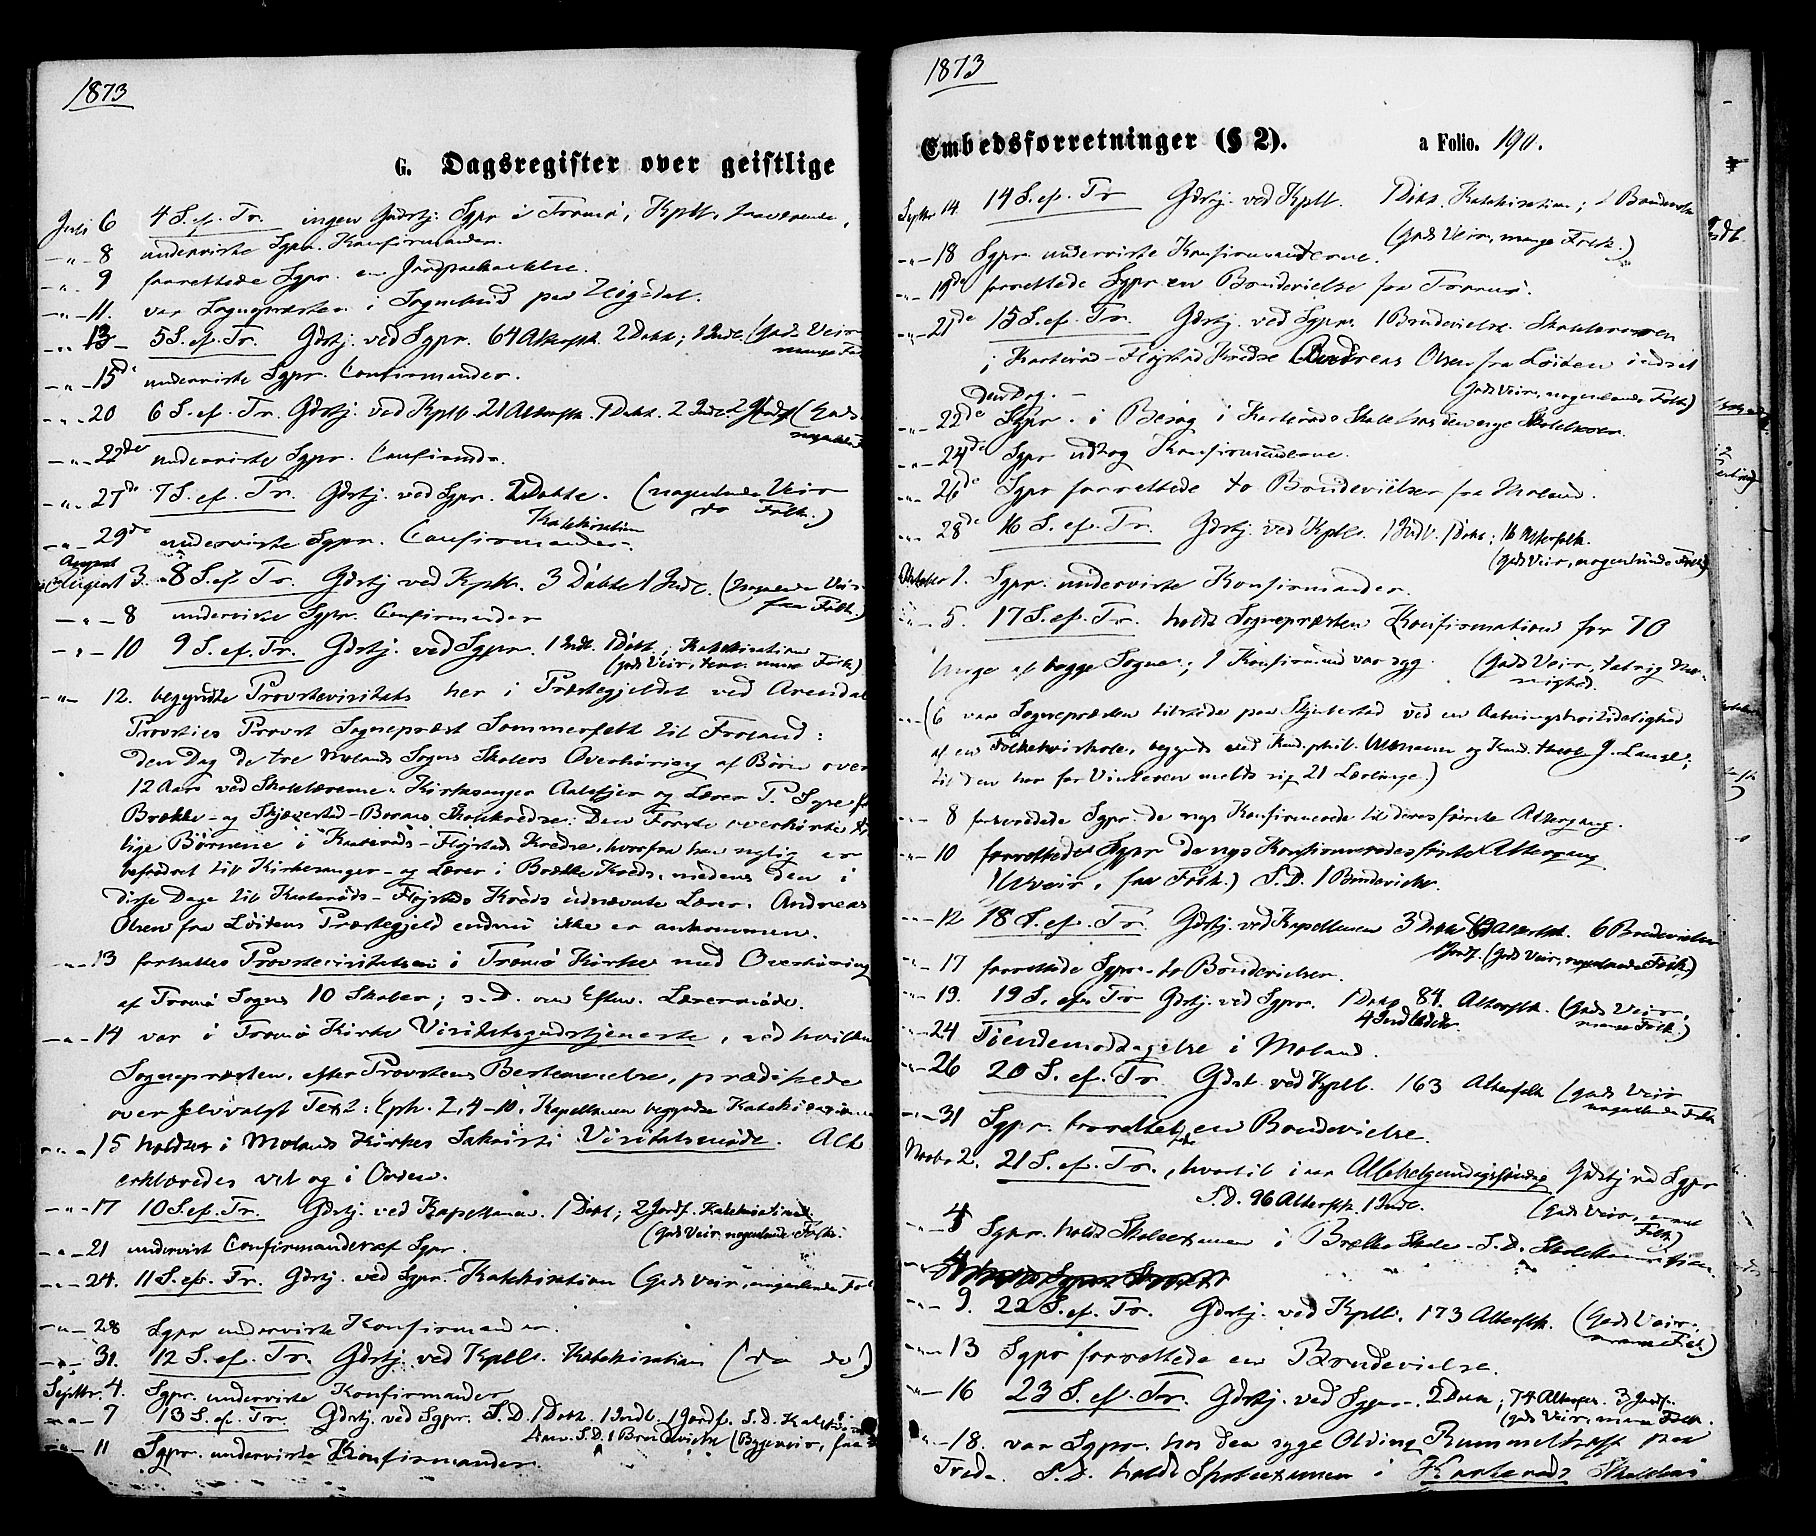 1873
G. Dagsregister over geistlige
Juli 6 4 S. ef. Tr. ingen Gudstj. Sgpr i Tromø, Kpll. fraværende.
-"- 8 underviste Sgpr. Konfirmander.
-"- 9 forrettede Sgpr. en Jordpaakastelse.
-"- 11. var Sognepræsten i Sognebud paa
-"- 13 5 S. ef. Tr. Gdstj. ved Sgpr. 64 Altfolk. 2 Døbte; (Godt Veir
mange Folk
-"- 15de underviste Sgpr. Confirmander.
-"- 20 6 S. ef. Tr. Gdstj. ved Kpll. 21 Alterfolk. 1 Døbt. 2 Indl. 2 Jordf (Godt
-"- 22de underviste Sgpr. Confirmde.
-"- 27de 7 S. ef. Tr. Gdstj. ved Sgpr. 2 Døbte. (nogenlunde Veir
Katekisation do Folk.)
-"- 29de underviste Sgpr. Confirmander.
August
August 3. 8 S. ef. Tr. Gdstj ved Kpll. 3 Døbte 1 Indl. (nogenlunde Veir
faa Folk.)
-"- 8 underviste Sgpr. Confirmander
-"- 10 9 S. ef. Tr. Gdstj. ved Sgpr. 1 Indl. 1 Døbt; Katekisation
(godt Veir, mange Folk)
-"- 12. begyndte Provstevisitats her i Præstegjeldet ved Arendals
Provsties Provst Sognepræst Sommerfelt til Froland:
den Dag de tre Molands Sogns Skolers Overhøring af Børn over
12 Aar ved Skolelærerne: Kirkesanger og Lærer T.
Brække- og Skjævestad- Skolekredse. Den Første overhørte
lige Børnene i Kasterøds-Fløjstad Kredse, hvorfra han nylig er
befordret til Kirkesanger- og Lærer i Brække Kreds, medens den i
disse Dage til Kasterøds-Fløjstads Kreds udnævnte Lærer. Andreas
Olsen fra Løitens Præstegjeld endnu ikke er ankommen.
-"- 13 fortsattes Provstevisitatsen i Tromø Kirke med Overhøring
af Tromø Sogns 10 Skoler; s. D. om Efterm. Lærermøde.
-"- 14 var i Tromø Kirke Visitatsgudstjeneste, ved hvilken
Sognepræsten, efter Provstens Bestemmelse, prædikede
over selvvalgt Text: Eph. 2, 4-10. Kapellanen begyndte Katekisationen
-"- 15 holdtes i Molands Kirkes Sakristi Visitatsmøde. Alt
erklæredes vel og i Orden.
-"- 17 10 S. ef. Tr. Gdstj. ved Kapellanen. 1 Døbt; 2 Jordf. Katekisation.
(godt Veir nogenlunde Folk.
-"- 21 undervist Confirmander af Sgpr.
-"- 24. 11 S. ef. Tr. Gdstj. ved Sgpr. Katekisation (godt Veir, nogenlunde Folk
-"- 28 Sgpr underviste Konfirmander.
-"- 31. 12 S. ef. Tr. Gdstj. ved Kpll. Katekisation (do do)
Septbr. 4. Sgpr. underviste Konfirmander
-"- 7 13 S. ef. Tr. Gdstj. ved Sgpr. S. D. 1 Døbt. 1 Indl. 1 Jordf. S. D.
S. D. 1 Brudevielse (Bygeveir, faa
-"- 11 Sgpr. underviste Konfirmander.
1873
Embedsforretninger (§ 2). a Folio. 190.
Septbr 14 14 S. ef. Tr Gdstj. ved Kpll. 1 Døbt. Katekisation; 1 Brudevielse
(godt Veir, mange Folk.)
-"- 18 Sgpr. underviste Konfirmanderne.
-"- 19de forrettede Sgpr en Brudevielse fra Tromø.
-"- 21de 15 S. ef. Tr. Gdstj. ved Sgpr. 1 Brudevielse. Skolelæreren
i Kasterød-Fløjstad Kredse Andreas Olsen fra Løiten indsat
den Dag. - (godt Veir, nogenlunde Folk)
-"- 22de Sgpr. i Besøg i Kasterøds Skole hos den nye Skolelærer.
-"- 24de Sgpr udtog Konfirmanderne.
-"- 26de Sgpr forrettede to Brudevielser fra Moland.
-"- 28de 16 S. ef. Tr. Gdstj. ved Kpll. 1 Indl. 1 Døbt; 16 Alterfolk.
(godt Veir, nogenlunde Folk)
Oktober 1. Sgpr. underviste Konfirmander.
-"- 5. 17 S. ef. Tr. holdt Sognepræsten Konfirmation for 70
Unge af begge Sogne; 1 Konfirmand var syg. (godt Veir, talrig
-"- (6 var Sognepræsten tilstede paa ved en Aabningshøitidelighed
af en Folkehøiskole, begyndt ved Kand. phil. Ullmann og Kand. theol. J. Lange;
til den har for Vinteren meldt sig 21 Lærlinge.)
-"- 8 forberedede Sgpr. de nys Konfirmerede til deres første Altergang.
-"- 10 forrettede Sgpr de nys Konfirmeredes første Altergang
(Uveir, faa Folk.) S. D. 1 Brudevielse.
-"- 12 18 S. ef. Tr. Gdstj. ved Kapellanen 3 Døbte Alterfolk. 6 Brudevielser
1 Jordf. (godt Veir, nogenlunde Folk)
-"- 17 forrettede Sgpr. to Brudevielser.
-"- 19. 19 S. ef. Tr Gdstj. ved Sgpr. 1 Døbt 84. Alterfolk. (godt Veir,
4 Indledede. mange Folk)
-"- 24 Tiendemodtagelse i Moland.
-"- 26 20 S. ef. Tr. Gdst. ved Kpll. 163 Alterfolk (godt Veir
nogenlunde Folk
-"- 31 Sgpr. forrettede en Brudevielse.
Novbr 2. 21 S. ef. Tr., hvortil i aar Allehelgensdag Gdstj ved Sgpr
S. D. 96 Alterfolk. 1 Indl. (godt Veir, Folk)
-"- 4 Sgpr. holdt Skoleexamen i Brække Skole - S. D. Skolekommission.
-"- 9. 22 S. ef. Tr. Gdstj. ved Kpll. 173 Alterfolk. (godt Veir.
mange Folk)
-"- 13 Sgpr forrettede en Brudevielse.
-"- 16 23 S. ef. Tr. Gdstj. ved Sgpr. 2 Døbte; 74 Alterfolk. 3 Jordf.
(godt Veir, mange Folk.
-"- 18. var Sgpr. hos den syge Olding Rummelhoff paa
S. D. holdt Skoleexamen i Kasterøds Skolehus